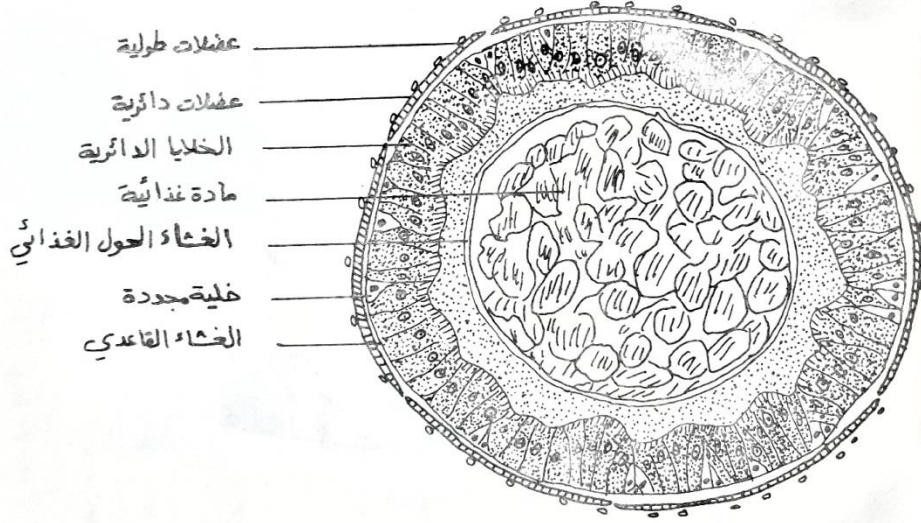 عضلات طولية
عضلات دائرية
الخلايا الدائرية
مادة غذائية
الغشاء الحول الغذائي
خلية مجددة
الغشاء القاعدي